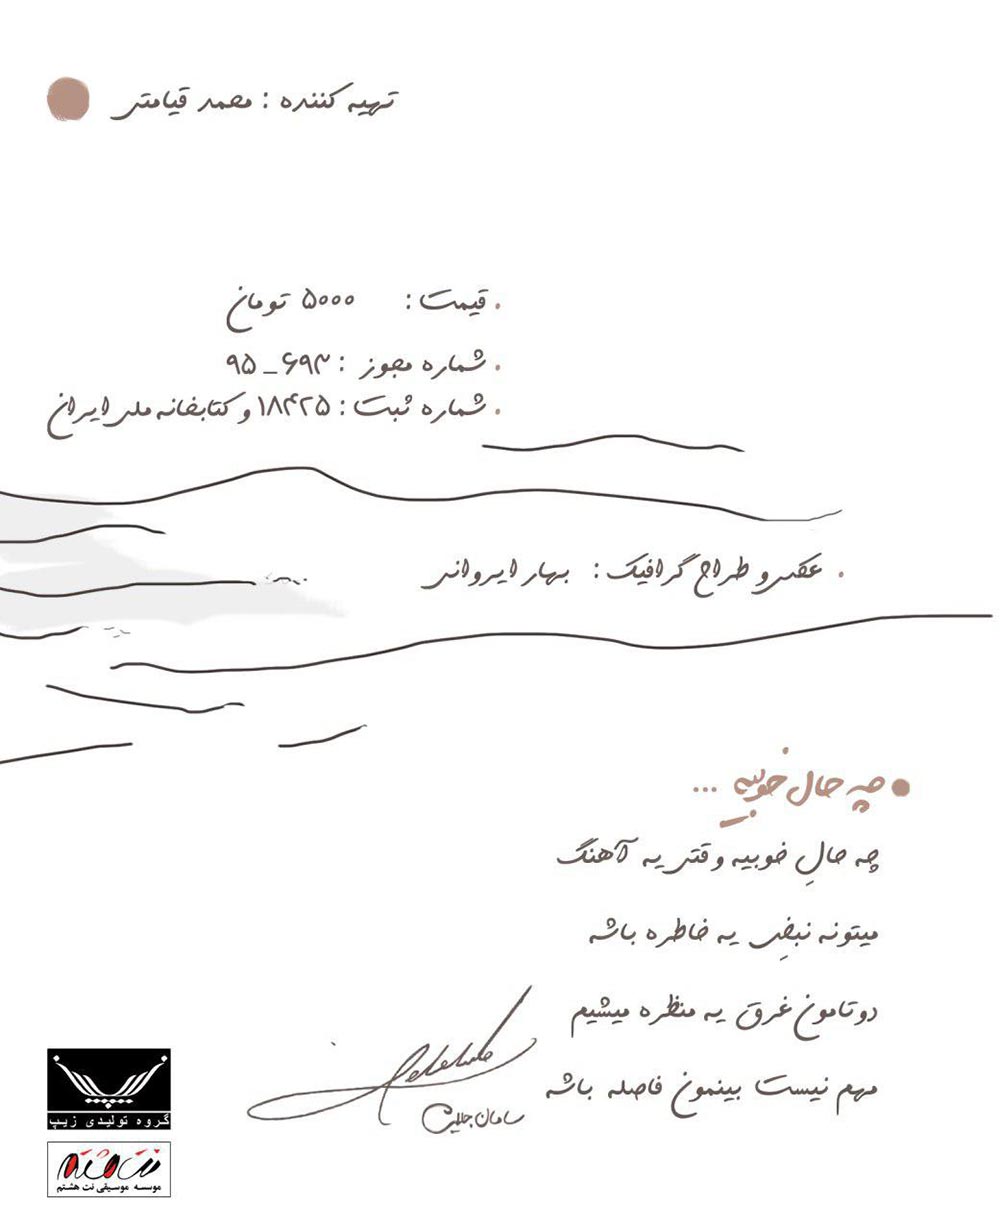 تهیه کننده : محمد قیامتی
. قیمت : ۵۰۰۰ تومان
. شماره مجوز : ۶۹۳_۹۵
. شماره ثبت : ۱۸۴۲۵ و کتابخانه ملی ایران
. عکس و طراح گرافیک : بهار ایروانی
چه حال خوبیه ...
چه حالِ خوبیه وقتی یه آهنگ
میتونه نبضِ یه خاطره باشه
دوتامون غرق یه منظره میشیم
مهم نیست بینمون فاصله باشه
سامان جلیلی
زیپ
گروه تولیدی زیپ
نت هشتم
موسسه موسیقی نت هشتم